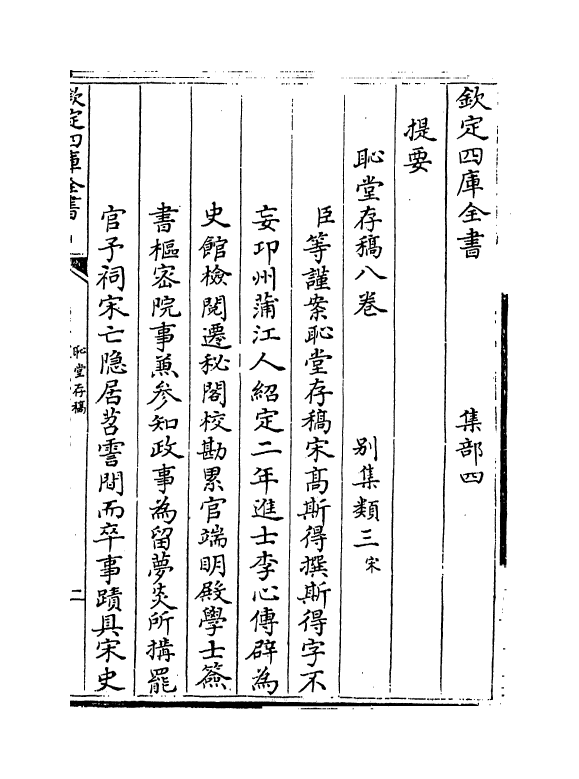 欽定四庫全書　集部四
提要
恥堂存稿八卷　別集類三宋
臣等謹案恥堂存稿宋髙斯得撰斯得字不
妄卭州蒲江人紹定二年進士李心傳辟為
史館檢閱遷秘閣校勘累官端明殿學士簽
書樞密院事兼参知政事為留夢炎所搆罷
官予祠宋亡隐居苕霅間而卒事蹟具宋史
欽定四庫全書
恥堂存稿
二